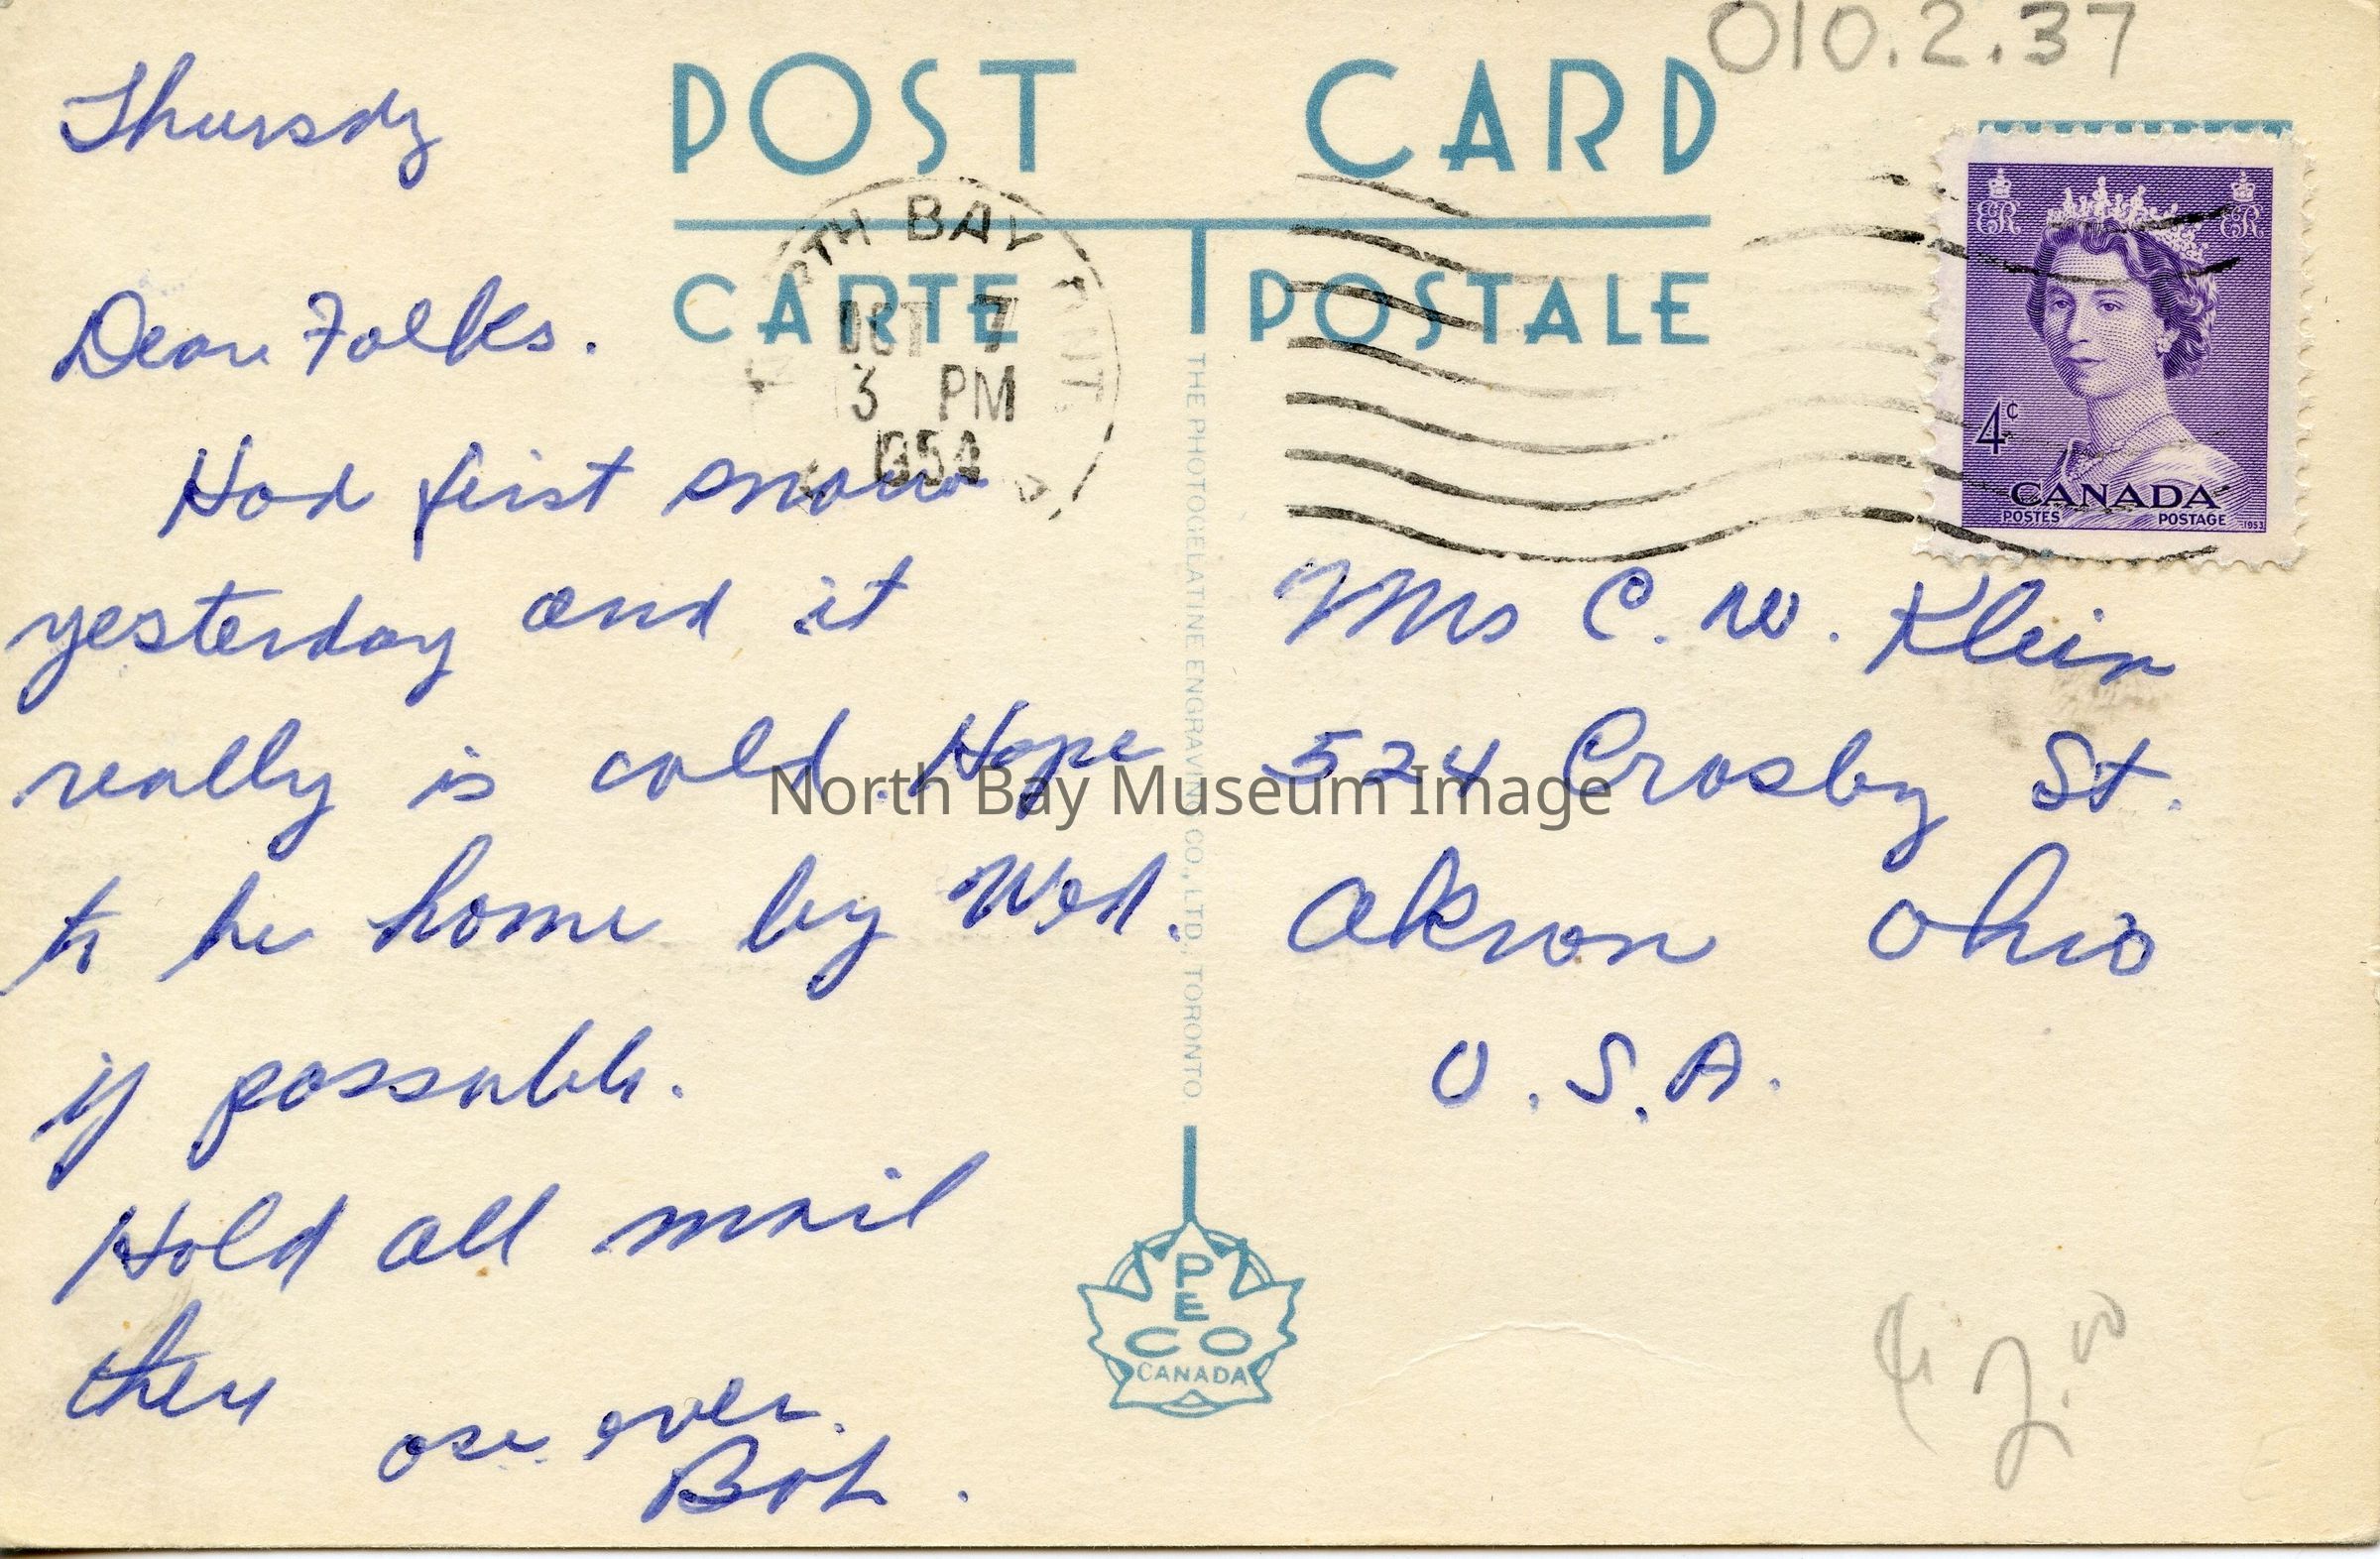 010.2.37
POST CARD
CARTE POSTALE
Thursdy
Dear Folks.
Had first snow
yesterday and it
really is cold. Hope
to be home by Wed.
if possable.
Hold all mail
then
over.
Bob.
NORTH BAY ONT.
OCT 7
3 PM
1954
THE PHOTOGELATINE ENGRAVING CO., LTD., TORONTO
PECO
CANADA
4¢
CANADA
POSTES POSTAGE
1953
Mrs C. W. Klein
524 Crosby St.
Akron Ohio
U.S.A.
North Bay Museum Image